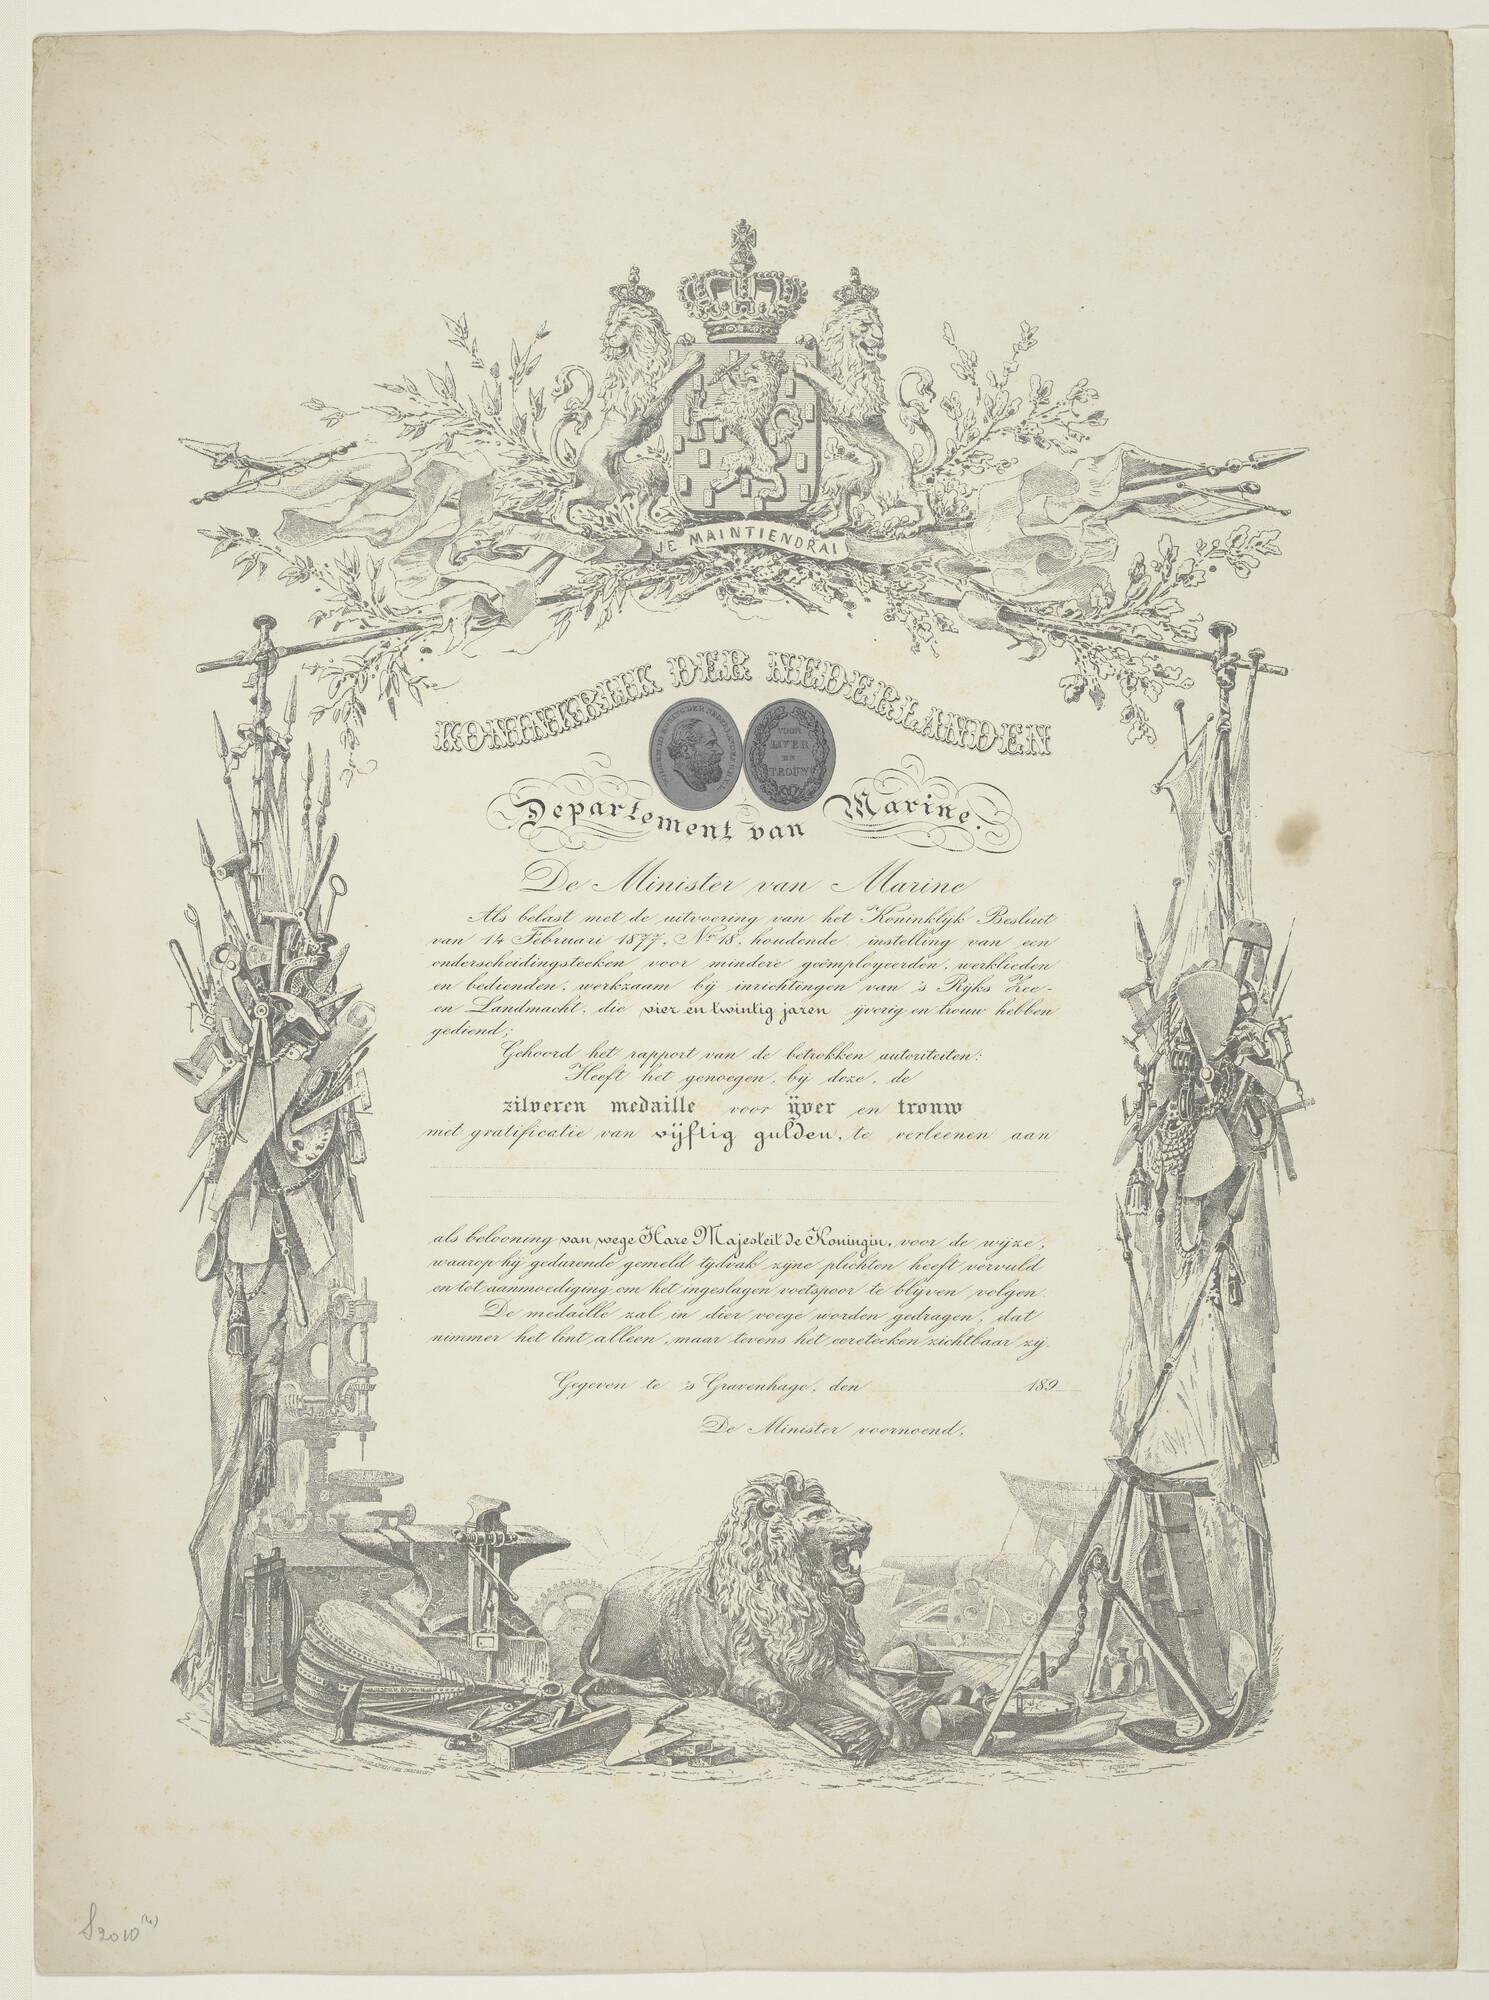 JE MAINTIENDRAI
KONINKRIJK DER NEDERLANDEN
VOOR
IJVER
EN
TROUW
Departement van Marine.
De Minister van Marine
Als belast met de uitvoering van het Koninklijk Besluit
van 14 Februari 1877, No 18, houdende instelling van een
onderscheidingsteeken voor mindere geëmployeerden, werklieden
en bedienden, werkzaam bij inrichtingen van 's Rijks Zee-
en Landmacht, die vier en twintig jaren ijverig en trouw hebben
gediend;
Gehoord het rapport van de betrokken autoriteiten:
Heeft het genoegen, bij deze, de
zilveren medaille voor ijver en trouw
met gratificatie van vijftig gulden, te verleenen aan
als belooning van wege Hare Majesteit de Koningin, voor de wijze,
waarop hij gedurende gemeld tijdvak zijne plichten heeft vervuld
en tot aanmoediging om het ingeslagen voetspoor te blijven volgen.
De medaille zal in dier voege worden gedragen, dat
nimmer het lint alleen, maar tevens het eereteeken zichtbaar zij.
Gegeven te 's Gravenhage, den 189
De Minister voornoemd,
S2010